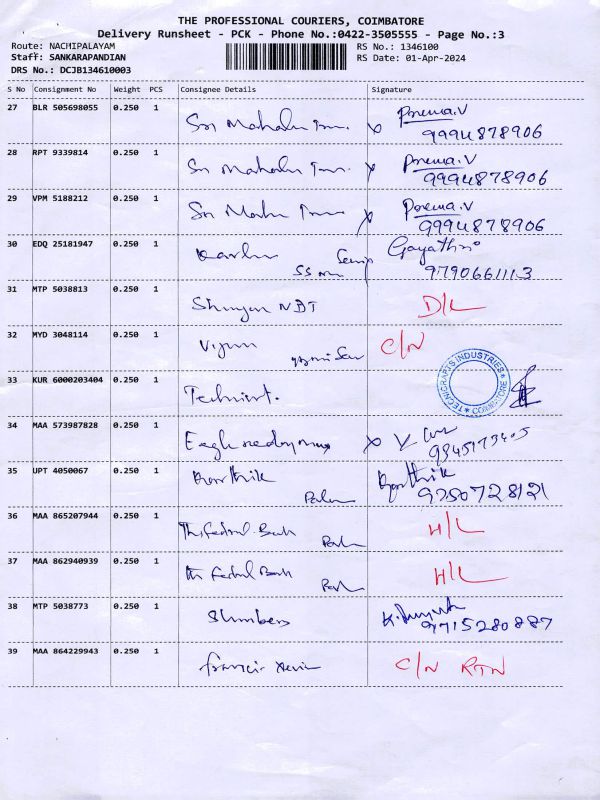 THE PROFESSIONAL COURIERS, COIMBATORE
Delivery Runsheet - PCK - Phone No.:0422-3505555 - Page No.:3
Route: NACHIPALAYAM
RS No.: 1346100
Staff: SANKARAPANDIAN
RS Date: 01-Apr-2024
DRS No.: DCJB134610003
S No Consignment No Weight PCS Consignee Details Signature
27 BLR 505698055 0.250 1 Sri x Prema.V
9994878906
28 RPT 9339814 0.250 1 Sri x Prema.V
9994878906
29 VPM 5188212 0.250 1 Sri x Prema.V
9994878906
30 EDQ 25181947 0.250 1 Gayathri
SS 9790661113
31 MTP 5038813 0.250 1 NBT D/L
32 MYD 3048114 0.250 1 C/N
33 KUR 6000203404 0.250 1
TECNICRAFTS INDUSTRIES
COIMBATORE
34 MAA 573987828 0.250 1 Eagle x
35 UPT 4050067 0.250 1 Karthik Karthik
36 MAA 865207944 0.250 1 The Fedral Bank H/L
37 MAA 862940939 0.250 1 The Fedral Bank H/L
38 MTP 5038773 0.250 1 Slumbers K.
9715280887
39 MAA 864229943 0.250 1 Francis C/N RTN